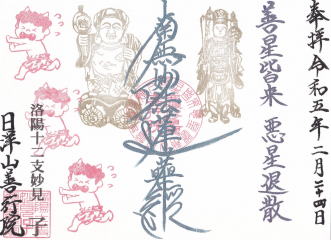 奉拝 令和五年二月二十四日
善星皆来 悪星退散
南無妙法蓮華経
洛陽十二支妙見 子
日洋山善行院